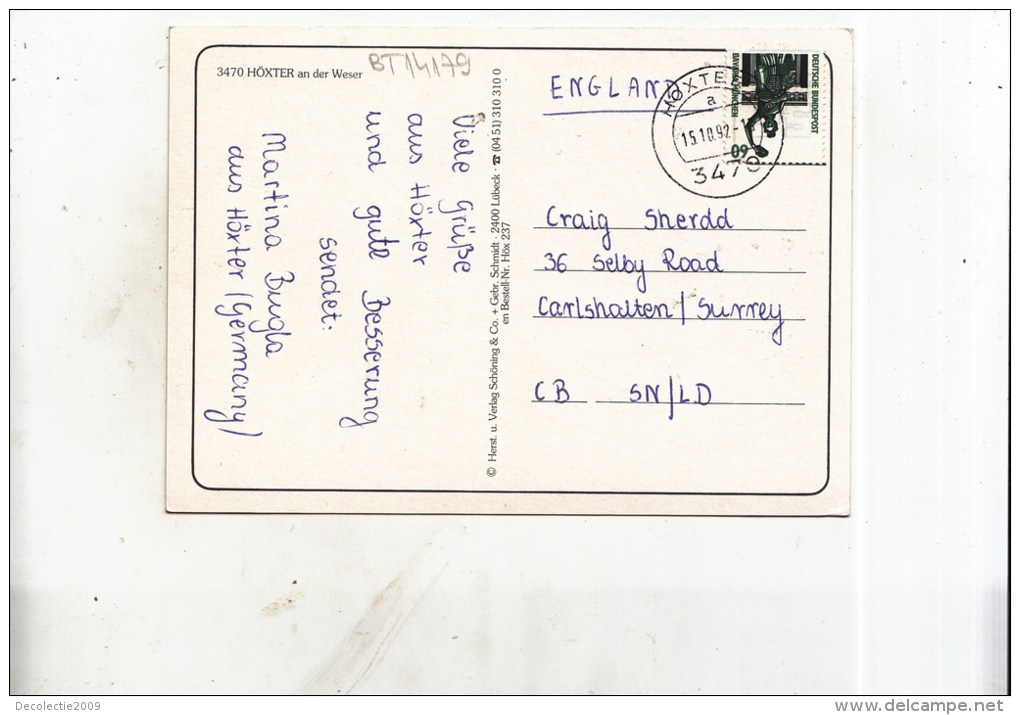 3470 HÖXTER an der Weser
BT14179
Viele Grüße
aus Höxter
und gute Besserung
sendet.
Martina Bugla
aus Höxter (Germany)
© Herst. u. Verlag Schöning & Co. + Gebr. Schmidt · 2400 Lübeck · ☎ (04 51) 310 310 0
en Bestell-Nr. Höx 237
ENGLAND
DEUTSCHE BUNDESPOST
BAVARIA MÜNCHEN
60
HÖXTE
a
15.10.92-1
3470
Craig Sherdd
36 Selby Road
Carlshalten / Surrey
CB SN/LD
Decolectie2009
www.delcampe.net